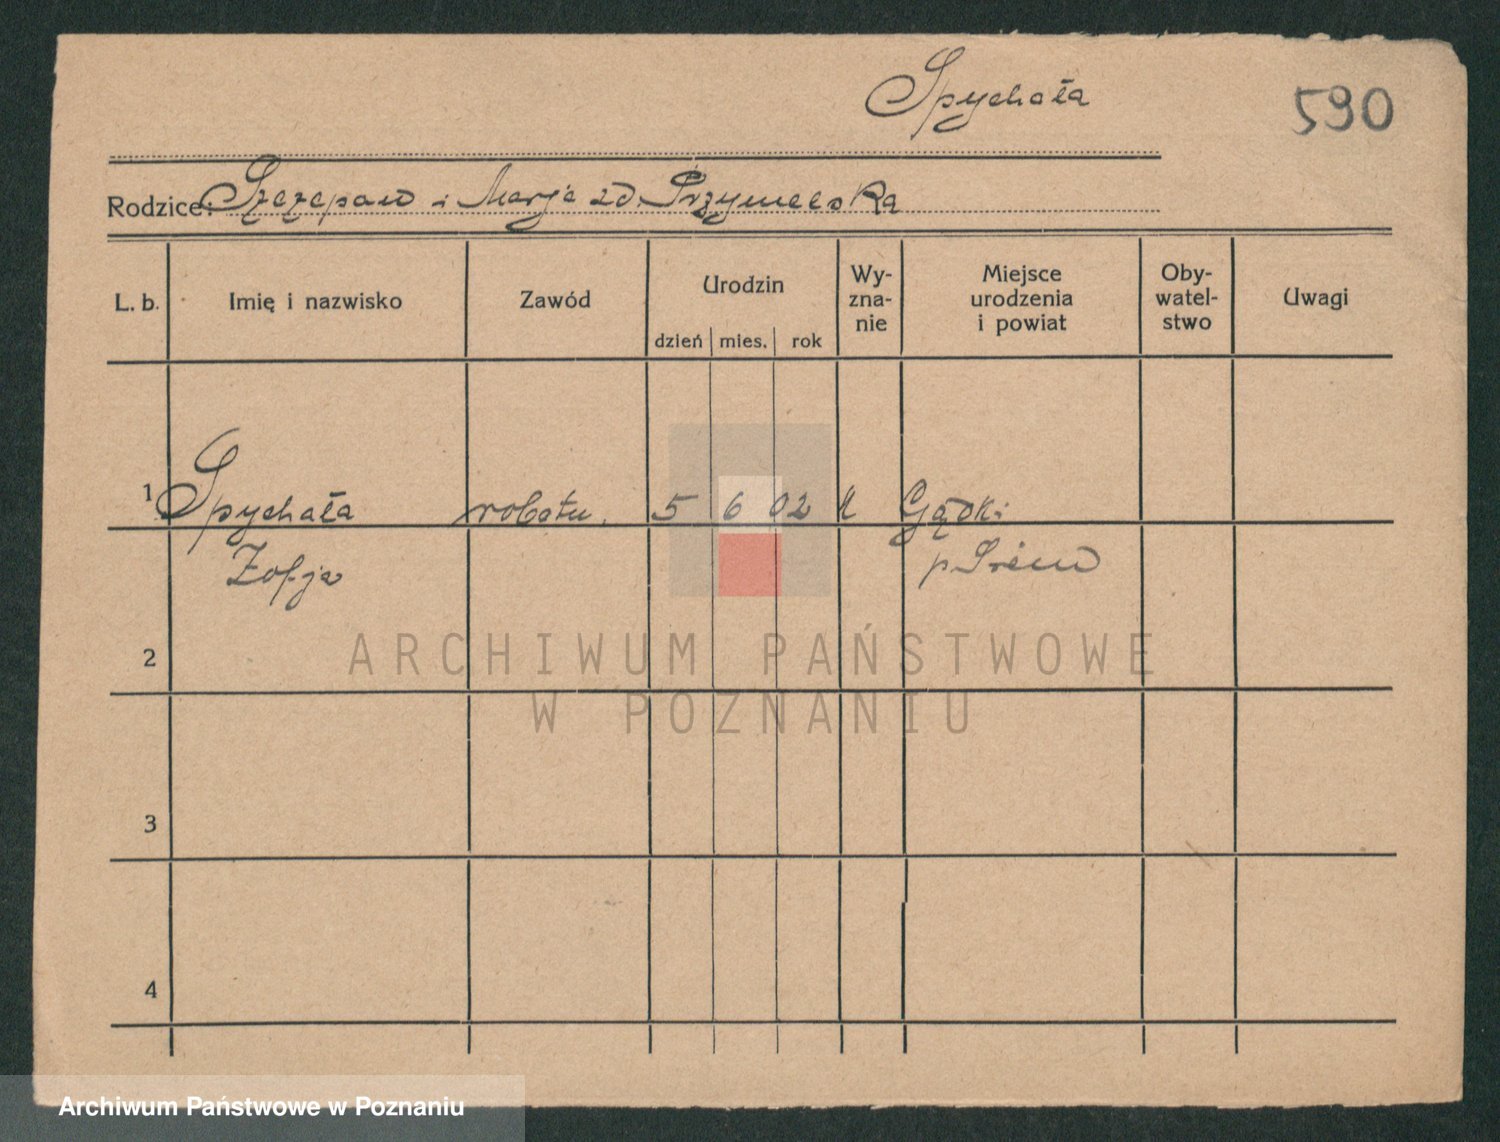 Spychała
590
Rodzice: Szczepan i Marja zd. Przymeńska
L. b.
Imię i nazwisko
Zawód
Urodzin
dzień mies. rok
Wy-
zna-
nie
Miejsce
urodzenia
i powiat
Oby-
watel-
stwo
Uwagi
1 Spychała robotn. 5 6 02 k Gądki
Zofja p. Śrem
2
ARCHIWUM PAŃSTWOWE
W POZNANIU
3
4
Archiwum Państwowe w Poznaniu